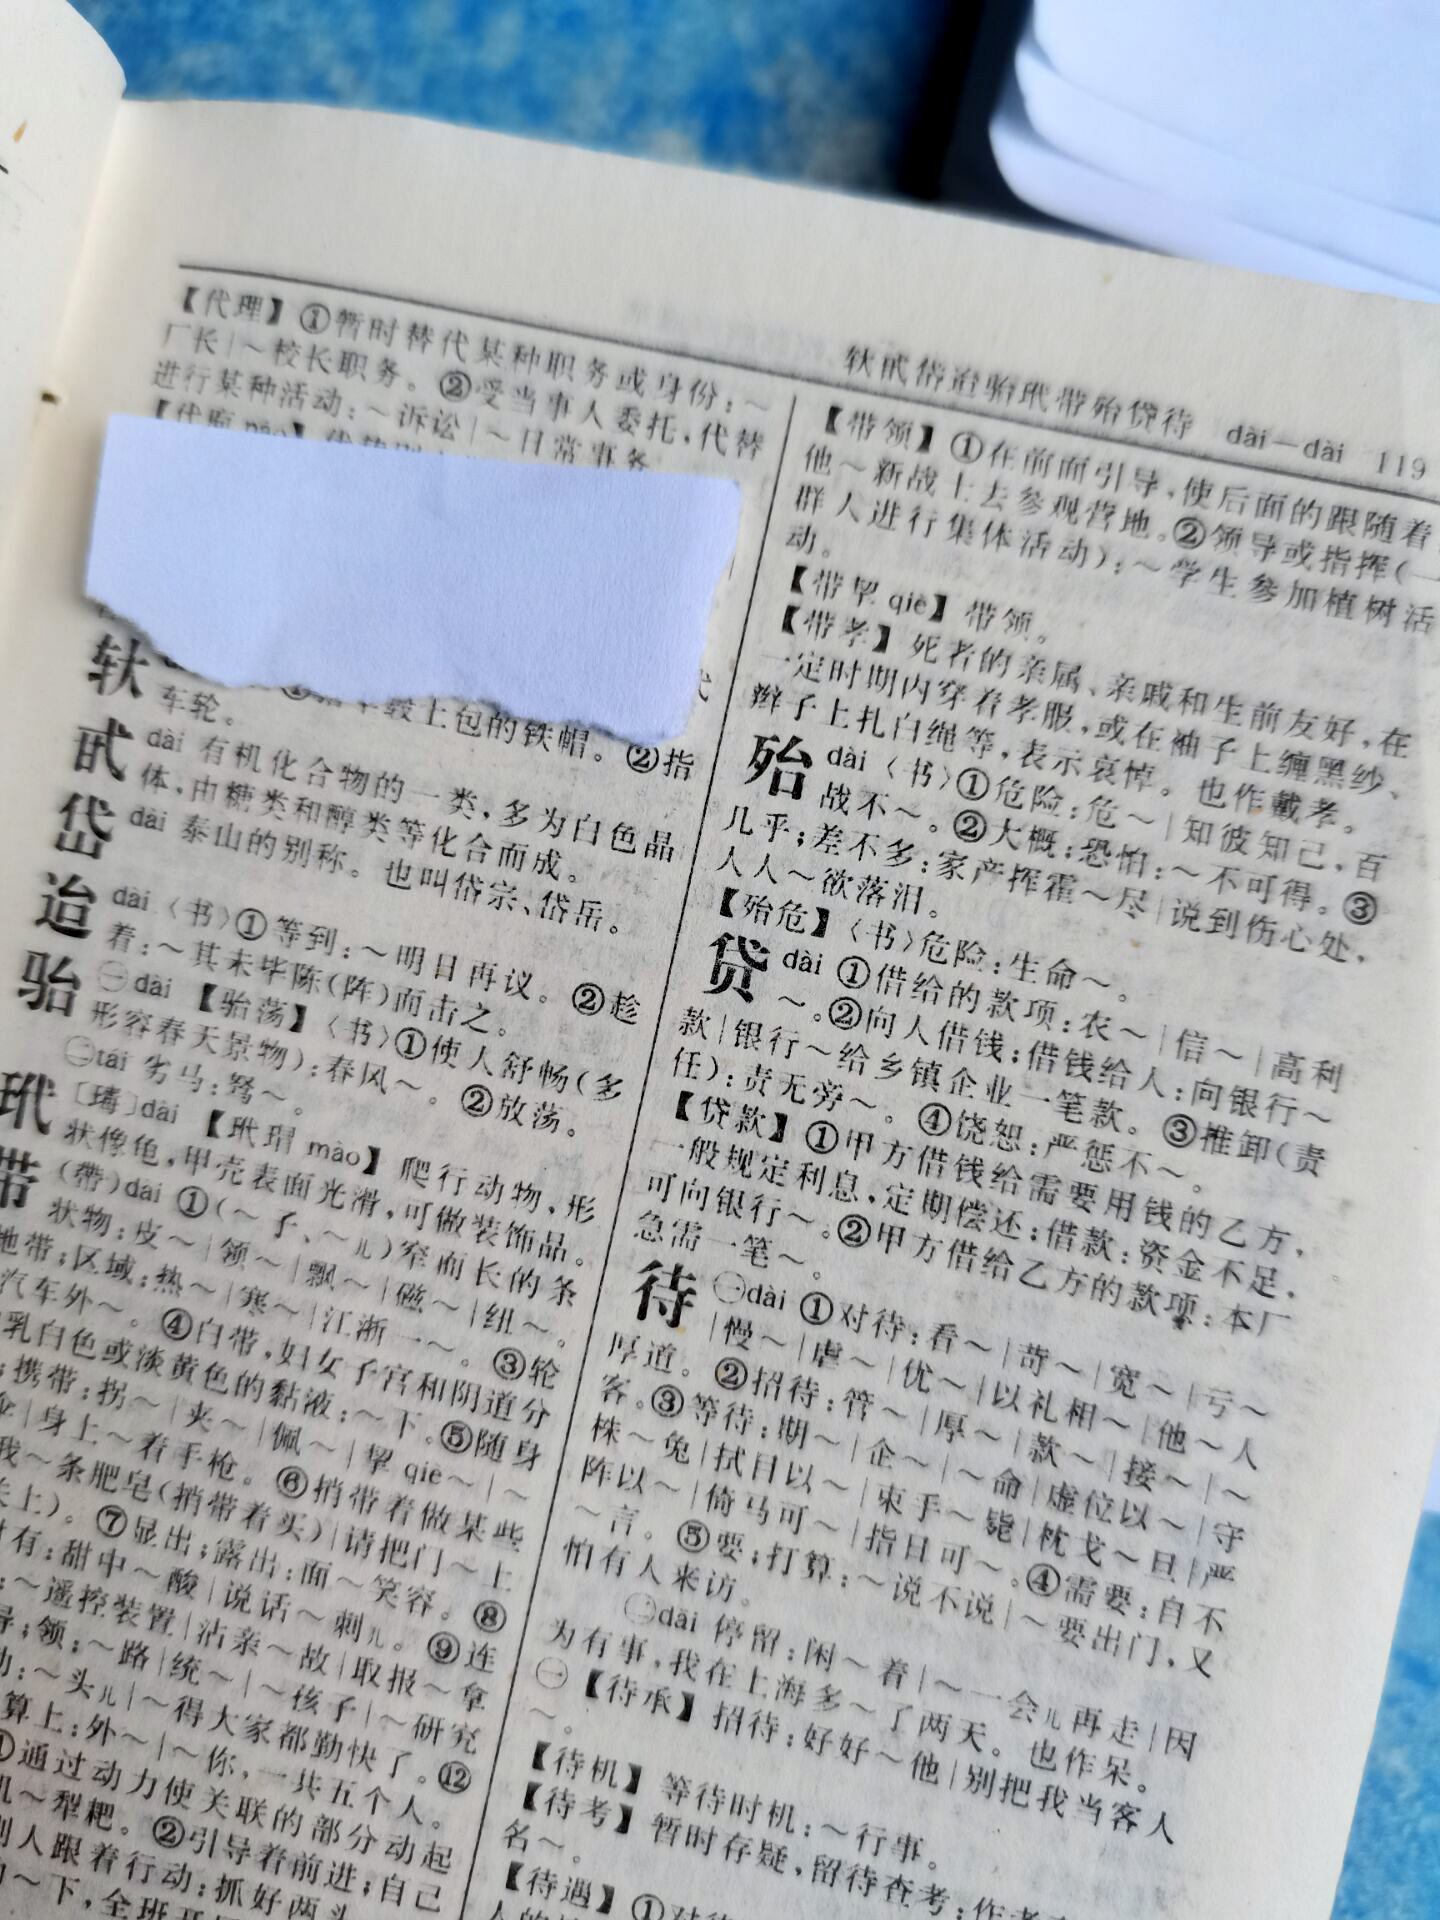 轪甙岱迨骀玳带殆贷待 dài—dài 119
【代理】①暂时替代某种职务或身份：～
厂长|～校长职务。②受当事人委托，代替
进行某种活动：～诉讼|～日常事务
轪
上包的铁帽。②指
车轮。
甙 dài 有机化合物的一类，多为白色晶
体，由糖类和醇类等化合而成。
岱 dài 泰山的别称。也叫岱宗、岱岳。
迨 dài〈书〉①等到：～明日再议。②趁
着：～其未毕陈(阵)而击之。
骀 ㊀dài 【骀荡】〈书〉①使人舒畅(多
形容春天景物)：春风～。②放荡。
㊁tái 劣马：驽～。
玳 〔瑇〕dài 【玳瑁 mào】爬行动物，形
状像龟，甲壳表面光滑，可做装饰品。
带 (帶)dài ①(～子、～儿)窄而长的条
状物：皮～|领～|飘～|磁～|纽～。
地带；区域：热～|寒～|江浙一～。③轮
汽车外～。④白带，妇女子宫和阴道分
乳白色或淡黄色的黏液：～下。⑤随身
携带：拐～|夹～|佩～|挈 qiè～|～
|身上～着手枪。⑥捎带着做某些
我～条肥皂(捎带着头)|请把门～上
关上)。⑦显出；露出：面～笑容。⑧
有：甜中～酸|说话～刺儿。⑨连
：～遥控装置|沾亲～故|取报～拿
导；领：～路|统～|～孩子|～研究
动：～头儿|～得大家都勤快了。⑫
算上：外～|～你，一共五个人。
①通过动力使关联的部分动起
机～犁耙。②引导着前进；自己
别人跟着行动：抓好两头
～下，全班
【带领】①在前面引导，使后面的跟随着
他～新战士去参观营地。②领导或指挥(一
群人进行集体活动)：～学生参加植树活
动。
【带挈 qiè】带领。
【带孝】死者的亲属、亲戚和生前友好，在
一定时期内穿着孝服，或在袖子上缠黑纱、
辫子上扎白绳等，表示哀悼。也作戴孝。
殆 dài〈书〉①危险：危～|知彼知己，百
战不～。②大概；恐怕：～不可得。③
几乎；差不多：家产挥霍～尽|说到伤心处，
人人～欲落泪。
【殆危】〈书〉危险：生命～。
贷 dài ①借给的款项：农～|信～|高利
～。②向人借钱；借钱给人：向银行～
款|银行～给乡镇企业一笔款。③推卸(责
任)：责无旁～。④饶恕：严惩不～。
【贷款】①甲方借钱给需要用钱的乙方，
一般规定利息，定期偿还；借款：资金不足，
可向银行～。②甲方借给乙方的款项：本厂
急需一笔～。
待 ㊀dài ①对待：看～|苛～|宽～|亏～
|慢～|虐～|优～|以礼相～|他～人
厚道。②招待：管～|厚～|款～|接～|～
客。③等待：期～|企～|～命|虚位以～|守
株～兔|拭目以～|束手～毙|枕戈～旦|严
阵以～|倚马可～|指日可～。④需要：自不
～言。⑤要；打算：～说不说|～要出门，又
怕有人来访。
㊁dāi 停留：闲～着|～一会儿再走|因
为有事，我在上海多～了两天。也作呆。
㊀【待承】招待：好好～他|别把我当客人
～。
【待机】等待时机：～行事。
【待考】暂时存疑，留待查考：
名～。
【待遇】①对待